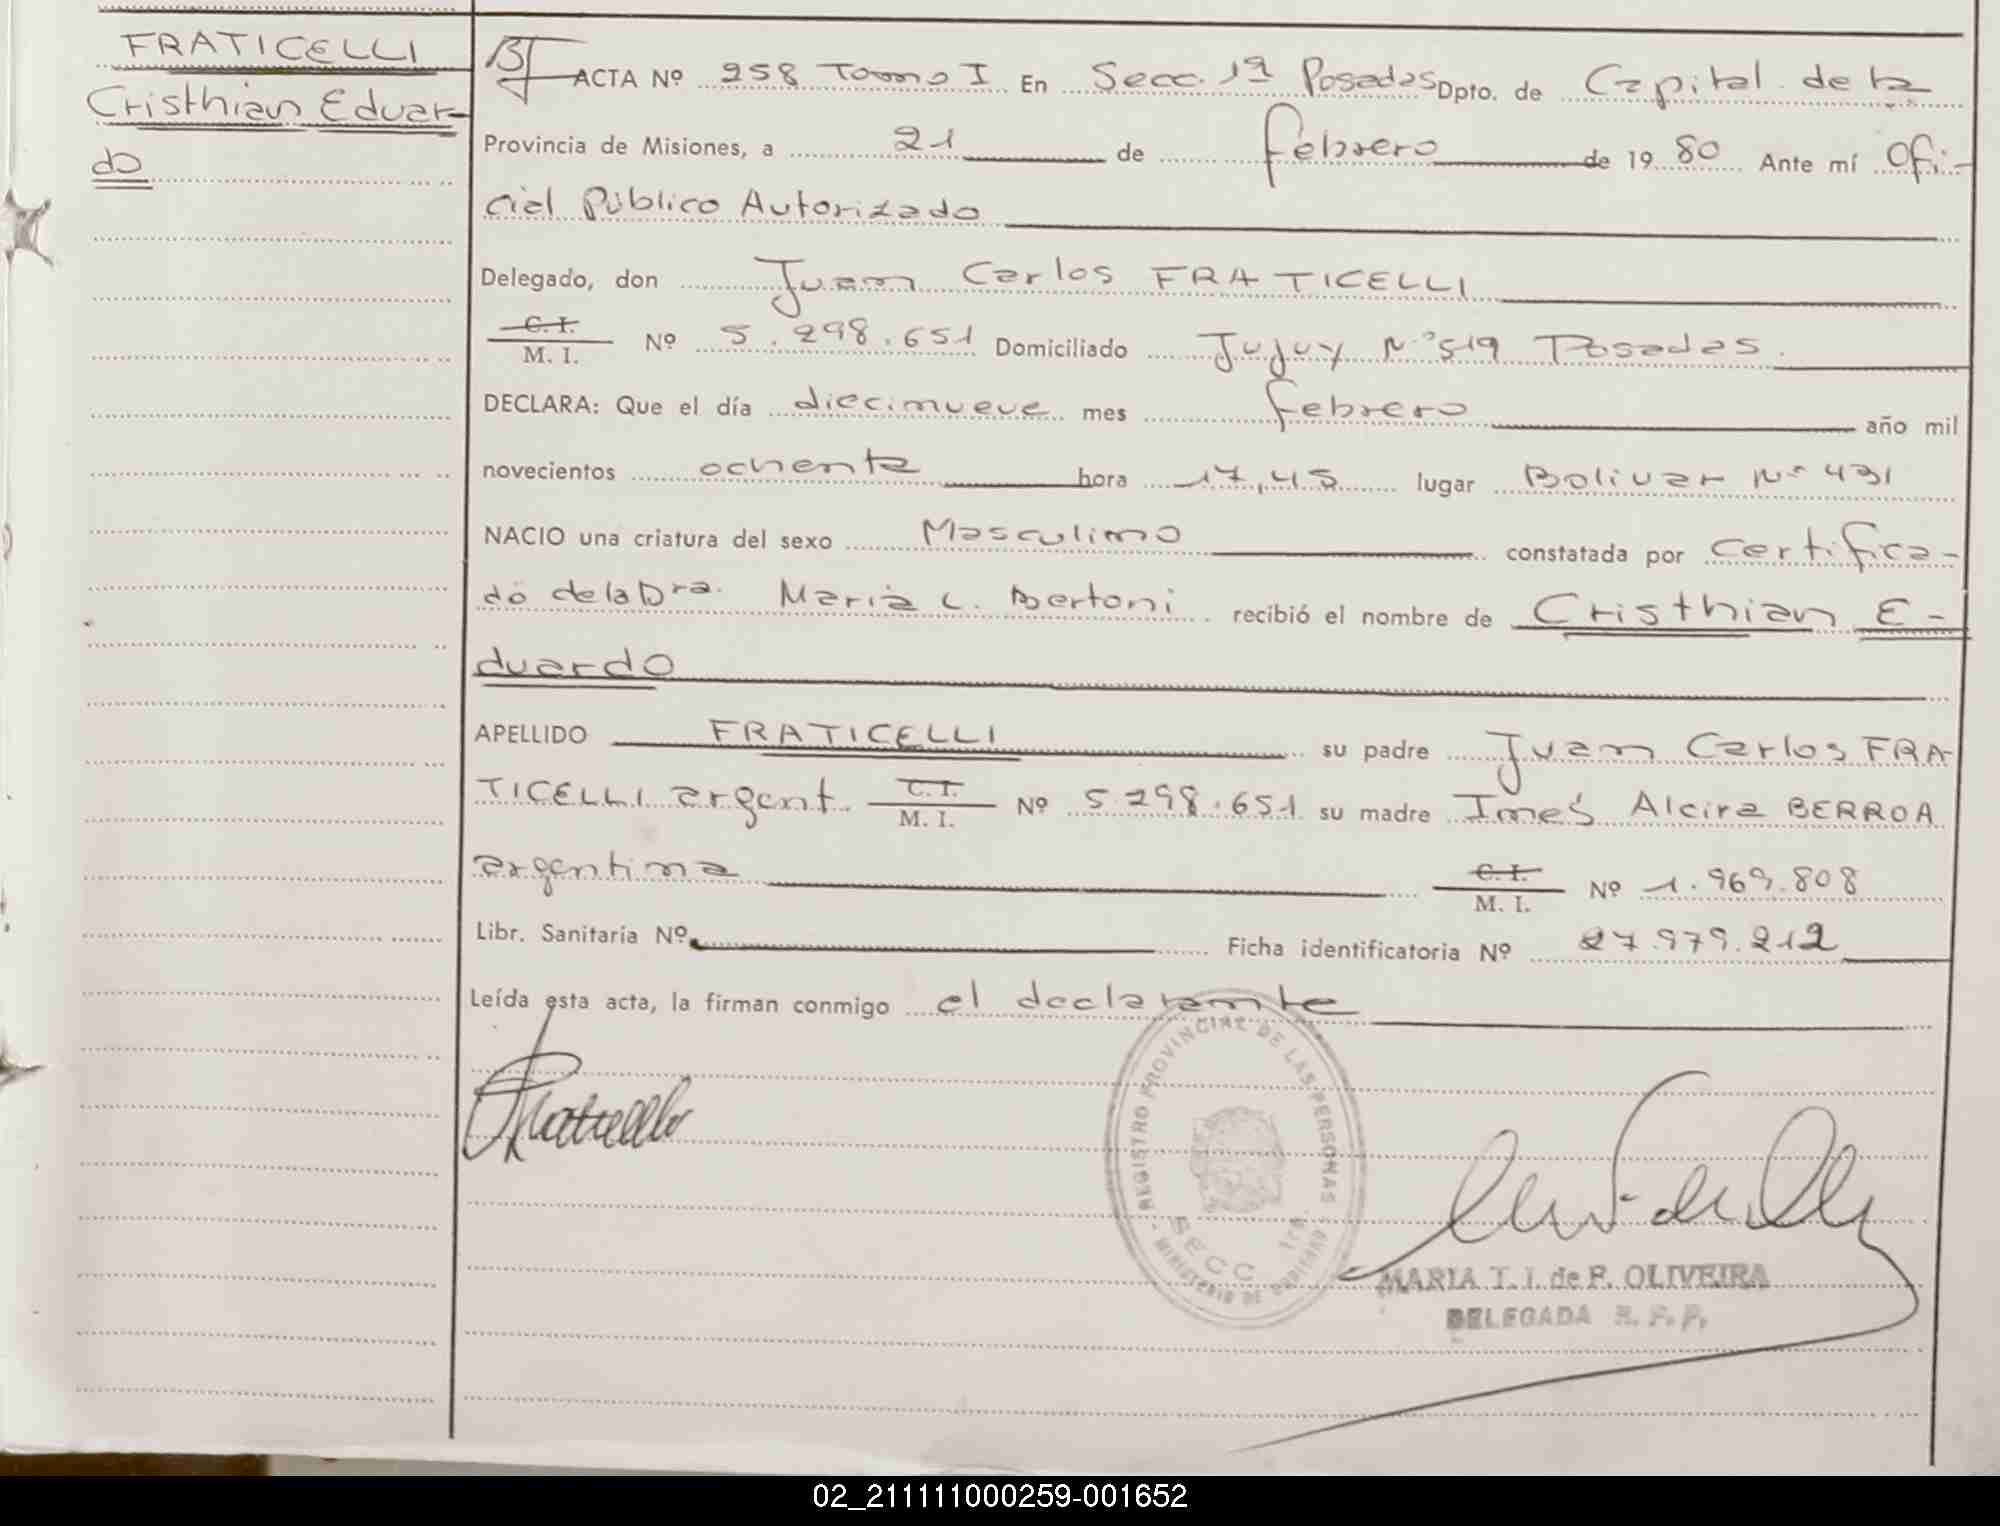 FRATICELLI
Cristhian Eduar-
do
ACTA Nº 258 Tomo I En Secc. 1ª Posadas Dpto. de Capital de la
Provincia de Misiones, a 21 de febrero de 1980 Ante mí Ofi-
cial Público Autorizado
Delegado, don Juan Carlos FRATICELLI
C.I.
M. I. Nº 5.298.651 Domiciliado Jujuy Nº 519 Posadas.
DECLARA: Que el día diecinueve mes febrero año mil
novecientos ochenta hora 17,45 lugar Bolivar Nº 431
NACIO una criatura del sexo Masculino constatada por certifica-
do de la Dra. Maria L. Bertoni recibió el nombre de Cristhian E-
duardo
APELLIDO FRATICELLI su padre Juan Carlos FRA
TICELLI argent. C.I.
M. I. Nº 5.298.651 su madre Inés Alcira BERROA
argentina C.I.
M. I. Nº 1.969.808
Libr. Sanitaria Nº Ficha identificatoria Nº 27.979.212
Leída esta acta, la firman conmigo el declarante
REGISTRO PROVINCIAL DE LAS PERSONAS
SECC 1ra.
MINISTERIO DE GOBIERNO
MARIA T. I. de F. OLIVEIRA
DELEGADA R. P. P.
02_211111000259-001652